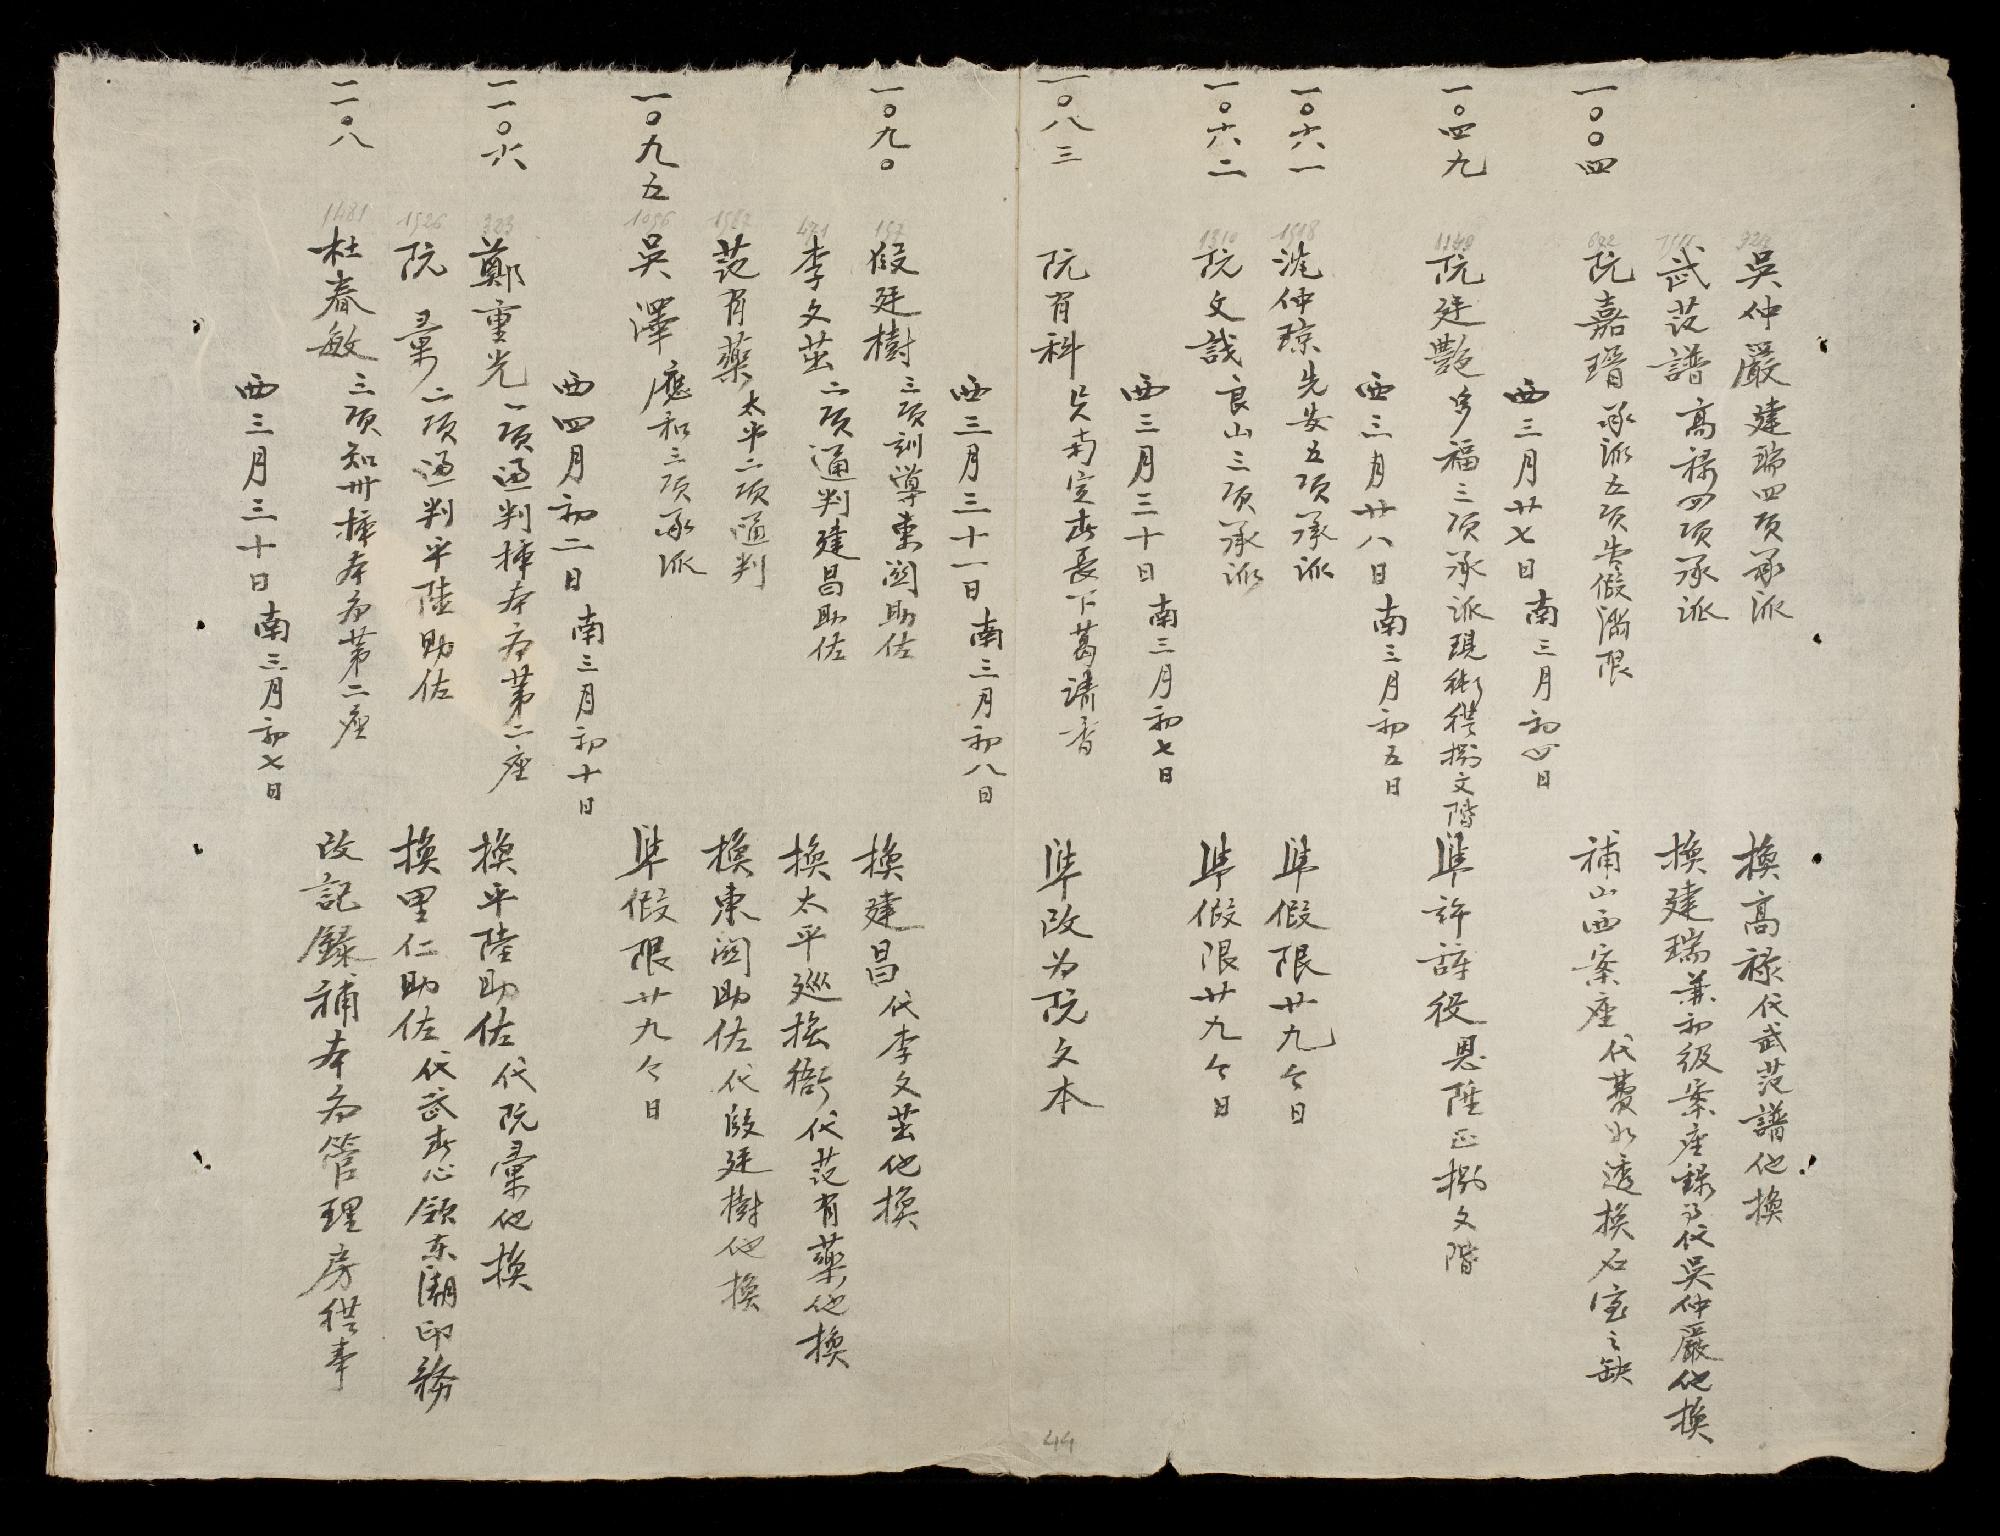 吳仲嚴建瑞四項承派 換高祿代武范譜他換
武范譜高祿四項承派 換建瑞兼初級案座錄事代吳仲嚴他換
一〇〇四 阮嘉瑨承派五項告假滿限 補山西案座代費如透換石室之缺
西三月廿七日南三月初四日
一〇四九 阮廷艷多福三項承派現銜從捌文階 準許辞役恩陞正捌文階
西三月廿八日南三月初五日
一〇六一 沈仲琼先安五項承派 準假限廿九个日
一〇六二 阮文識良山三項承派 準假限廿九个日
西三月三十日南三月初七日
一〇八三 阮有科 準改为阮文本
西三月三十一日南三月初八日
一〇九〇 段廷樹三項訓導東關助佐 換建昌代李文茁他換
李文茁二項通判建昌助佐 換太平巡撫衙代范有藥他換
范有藥太平二項通判 換東關助佐代段廷樹他換
一〇九五 吳澤應和三項承派 準假限廿九个日
西四月初二日南三月初十日
一一〇六 鄭重光一項通判揀本府第二座 換平陸助佐代阮彙他換
阮彙二項通判平陸助佐 換里仁助佐代武春心領東潮印務
一一〇八 杜春敏三項知州揀本府第二座 改記錄補本府管理房供事
西三月三十日南三月初七日
44